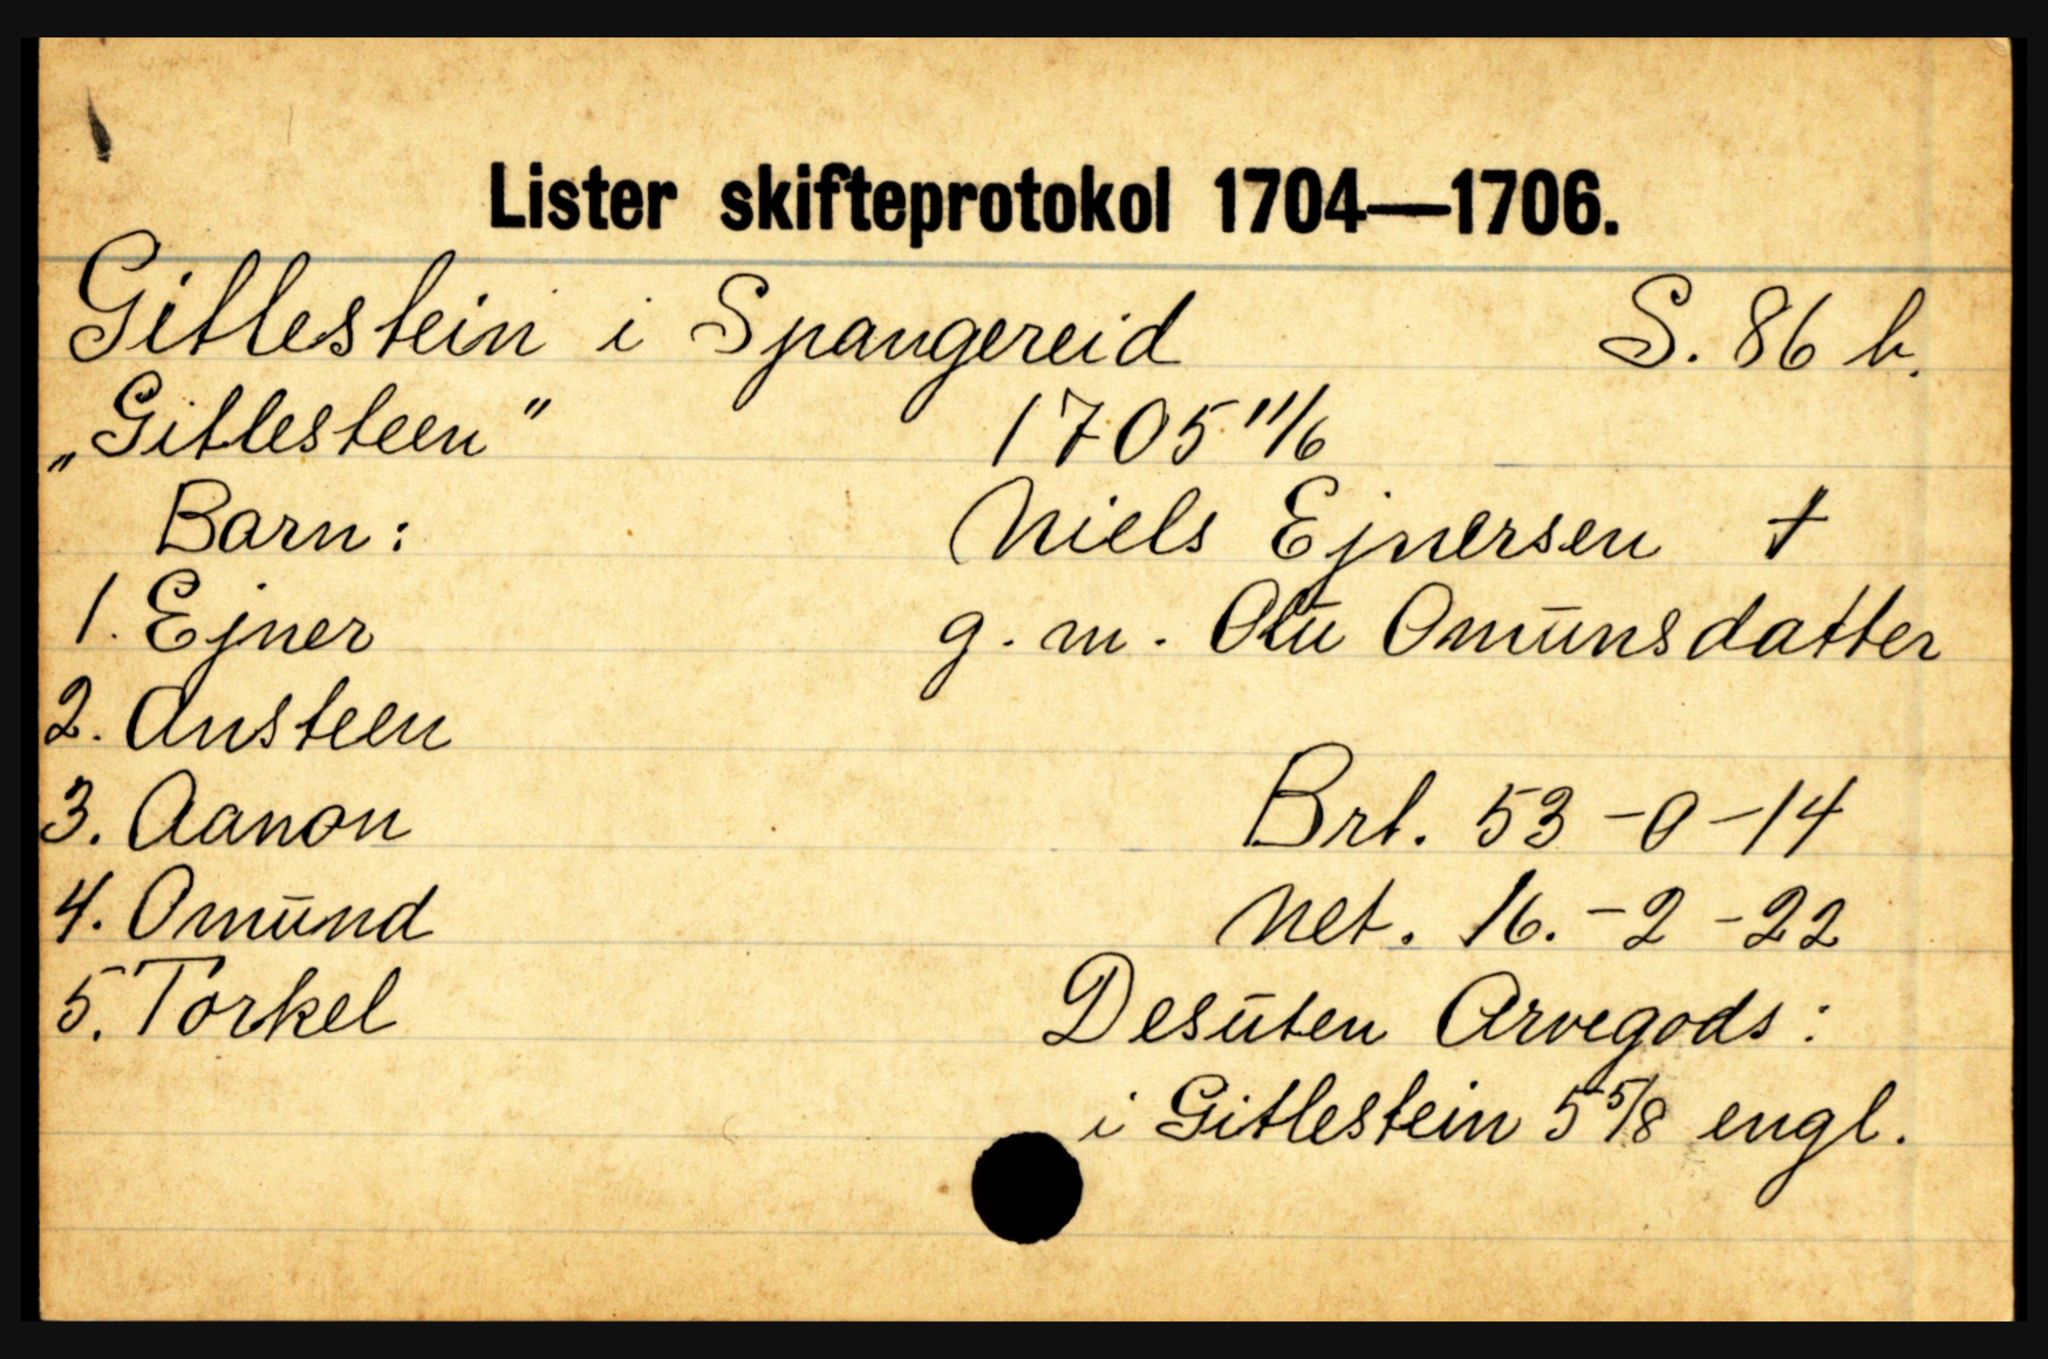 Lister skifteprotokol 1704—1706.
Gitlestein i Spangereid S. 86 b.
„Gitlesteen" 1705 11/6
Barn: Niels Ejnersen †
1. Ejner g. m. Olu Omunsdatter
2. Ansteen
3. Aanon Brt. 53-0-14
4. Omund Net. 16.-2-22
5. Torkel Desuten Arvegods:
i Gitlestein 5 5/8 engl.